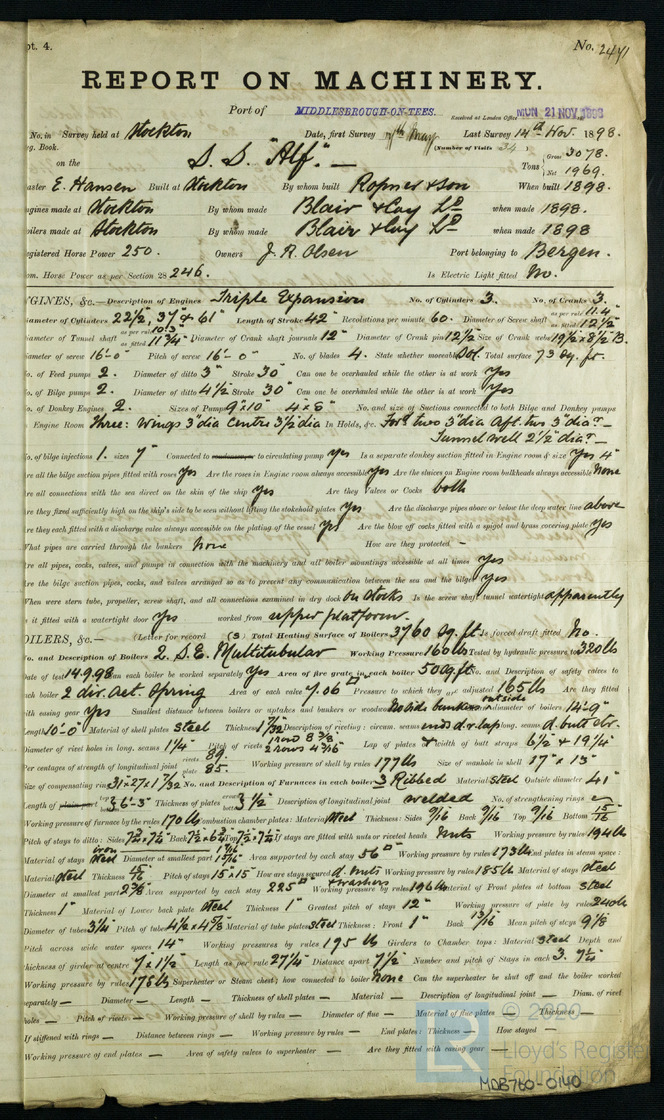 pt. 4. No. 2441
REPORT ON MACHINERY.
Port of MIDDLESBROUGH-ON-TEES. Received at London Office MON 21 NOV 1898
No. in Survey held at Stockton Date, first Survey 17th May Last Survey 14th Nov. 1898.
g. Book. (Number of Visits 34)
on the S.S. "Alf." — Tons Gross 3078. Net 1969.
aster E. Hansen Built at Stockton By whom built Ropner & Son When built 1898.
ngines made at Stockton By whom made Blair & Coy Ld when made 1898.
oilers made at Stockton By whom made Blair & Coy Ld when made 1898
egistered Horse Power 250. Owners J. R. Olsen Port belonging to Bergen.
om. Horse Power as per Section 28 246. Is Electric Light fitted No.
NGINES, &c.— Description of Engines Triple Expansion No. of Cylinders 3. No. of Cranks 3.
iameter of Cylinders 22½, 37 & 61" Length of Stroke 42" Revolutions per minute 60. Diameter of Screw shaft as per rule 11.4" as fitted 12½"
iameter of Tunnel shaft as per rule 10.3" as fitted 11¾" Diameter of Crank shaft journals 12" Diameter of Crank pin 12½ Size of Crank webs 19½ x 8½ B.
iameter of screw 16'-0" Pitch of screw 16'-0" No. of blades 4. State whether moveable Sol. Total surface 73 sq. ft.
o. of Feed pumps 2. Diameter of ditto 3" Stroke 30" Can one be overhauled while the other is at work Yes
o. of Bilge pumps 2. Diameter of ditto 4½ Stroke 30" Can one be overhauled while the other is at work Yes
o. of Donkey Engines 2. Sizes of Pumps 9" x 10" 4 x 6" No. and size of Suctions connected to both Bilge and Donkey pumps
Engine Room Three: Wings 3" dia Centre 3½ dia In Holds, &c. For'd two 3" dia Aft. two 3" dia? —
Tunnel well 2½" dia? —
o. of bilge injections 1. sizes 7" Connected to to circulating pump yes Is a separate donkey suction fitted in Engine room & size Yes 4"
re all the bilge suction pipes fitted with roses Yes Are the roses in Engine room always accessible Yes Are the sluices on Engine room bulkheads always accessible None
re all connections with the sea direct on the skin of the ship Yes Are they Valves or Cocks both
re they fixed sufficiently high on the ship's side to be seen without lifting the stokehold plates Yes Are the discharge pipes above or below the deep water line above
re they each fitted with a discharge valve always accessible on the plating of the vessel Yes Are the blow off cocks fitted with a spigot and brass covering plate Yes
hat pipes are carried through the bunkers None How are they protected -
re all pipes, cocks, valves, and pumps in connection with the machinery and all boiler mountings accessible at all times Yes
re the bilge suction pipes, cocks, and valves arranged so as to prevent any communication between the sea and the bilges Yes
hen were stern tube, propeller, screw shaft, and all connections examined in dry dock On stocks Is the screw shaft tunnel watertight apparently
s it fitted with a watertight door Yes worked from upper platform.
OILERS, &c.— (Letter for record (S) Total Heating Surface of Boilers 3760 Sq. ft. Is forced draft fitted No.
o. and Description of Boilers 2 S.E. Multitubular Working Pressure 160 lbs Tested by hydraulic pressure to 320 lbs
ate of test 14.9.98 Can each boiler be worked separately Yes Area of fire grate in each boiler 50 sq. ft. No. and Description of safety valves to
ach boiler 2 dir. act. Spring Area of each valve 7.06 □" Pressure to which they are adjusted 165 lbs Are they fitted
ith easing gear Yes Smallest distance between boilers or uptakes and bunkers or woodwork No side bunkers outside diameter of boilers 14'-9"
ength 10'-0" Material of shell plates Steel Thickness 1 7/32 Description of riveting: circum. seams ends d.r. lap long. seams d. butt str.
iameter of rivet holes in long. seams 1¼" Pitch of rivets 1 row 8⅜ 2 rows 4 3/16 Lap of plates & width of butt straps 6½ & 19¼"
er centages of strength of longitudinal joint rivets 89. plate 85. Working pressure of shell by rules 177 lbs Size of manhole in shell 17" x 13"
ize of compensating ring 31 x 27 x 1 7/32 No. and Description of Furnaces in each boiler 3 Ribbed Material Steel Outside diameter 41"
ength of top 6'-3" Thickness of plates 3½ Description of longitudinal joint welded No. of strengthening rings -
orking pressure of furnace by the rules 170 lbs Combustion chamber plates: Material Steel Thickness: Sides 9/16 Back 9/16 Top 9/16 Bottom 15/16
itch of stays to ditto: Sides 7¾ x 7½ Back 7½ x 6¾ Top 7½ x 7½ If stays are fitted with nuts or riveted heads Nuts Working pressure by rules 194 lbs
aterial of stays Iron Diameter at smallest part Area supported by each stay 56 □" Working pressure by rules 173 lbs End plates in steam space:
aterial Steel Thickness 15/16 Pitch of stays 15 x 15 How are stays secured d. nuts & washers Working pressure by rules 185 lbs Material of stays Steel
iameter at smallest part 2⅝ Area supported by each stay 225 □" Working pressure by rules 196 lbs Material of Front plates at bottom Steel
hickness 1" Material of Lower back plate Steel Thickness 1" Greatest pitch of stays 12" Working pressure of plate by rules 240 lbs
iameter of tubes 3¼ Pitch of tubes 4½ x 4⅝ Material of tube plates Steel Thickness: Front 1" Back 13/16 Mean pitch of stays 9⅛
itch across wide water spaces 14" Working pressures by rules 195 lb Girders to Chamber tops: Material Steel Depth and
hickness of girder at centre 7 x 1½ Length as per rule 27¼ Distance apart 7½ Number and pitch of Stays in each 3. 7½
orking pressure by rules 178 lbs Superheater or Steam chest; how connected to boiler None Can the superheater be shut off and the boiler worked
eparately — Diameter — Length — Thickness of shell plates — Material — Description of longitudinal joint — Diam. of rivet
oles — Pitch of rivets — Working pressure of shell by rules — Diameter of flue — Material of flue plates — Thickness —
If stiffened with rings — Distance between rings — Working pressure by rules — End plates: Thickness — How stayed —
Working pressure of end plates — Area of safety valves to superheater — Are they fitted with easing gear —
© 2020
LR Lloyd's Register
Foundation
MDB760-0140